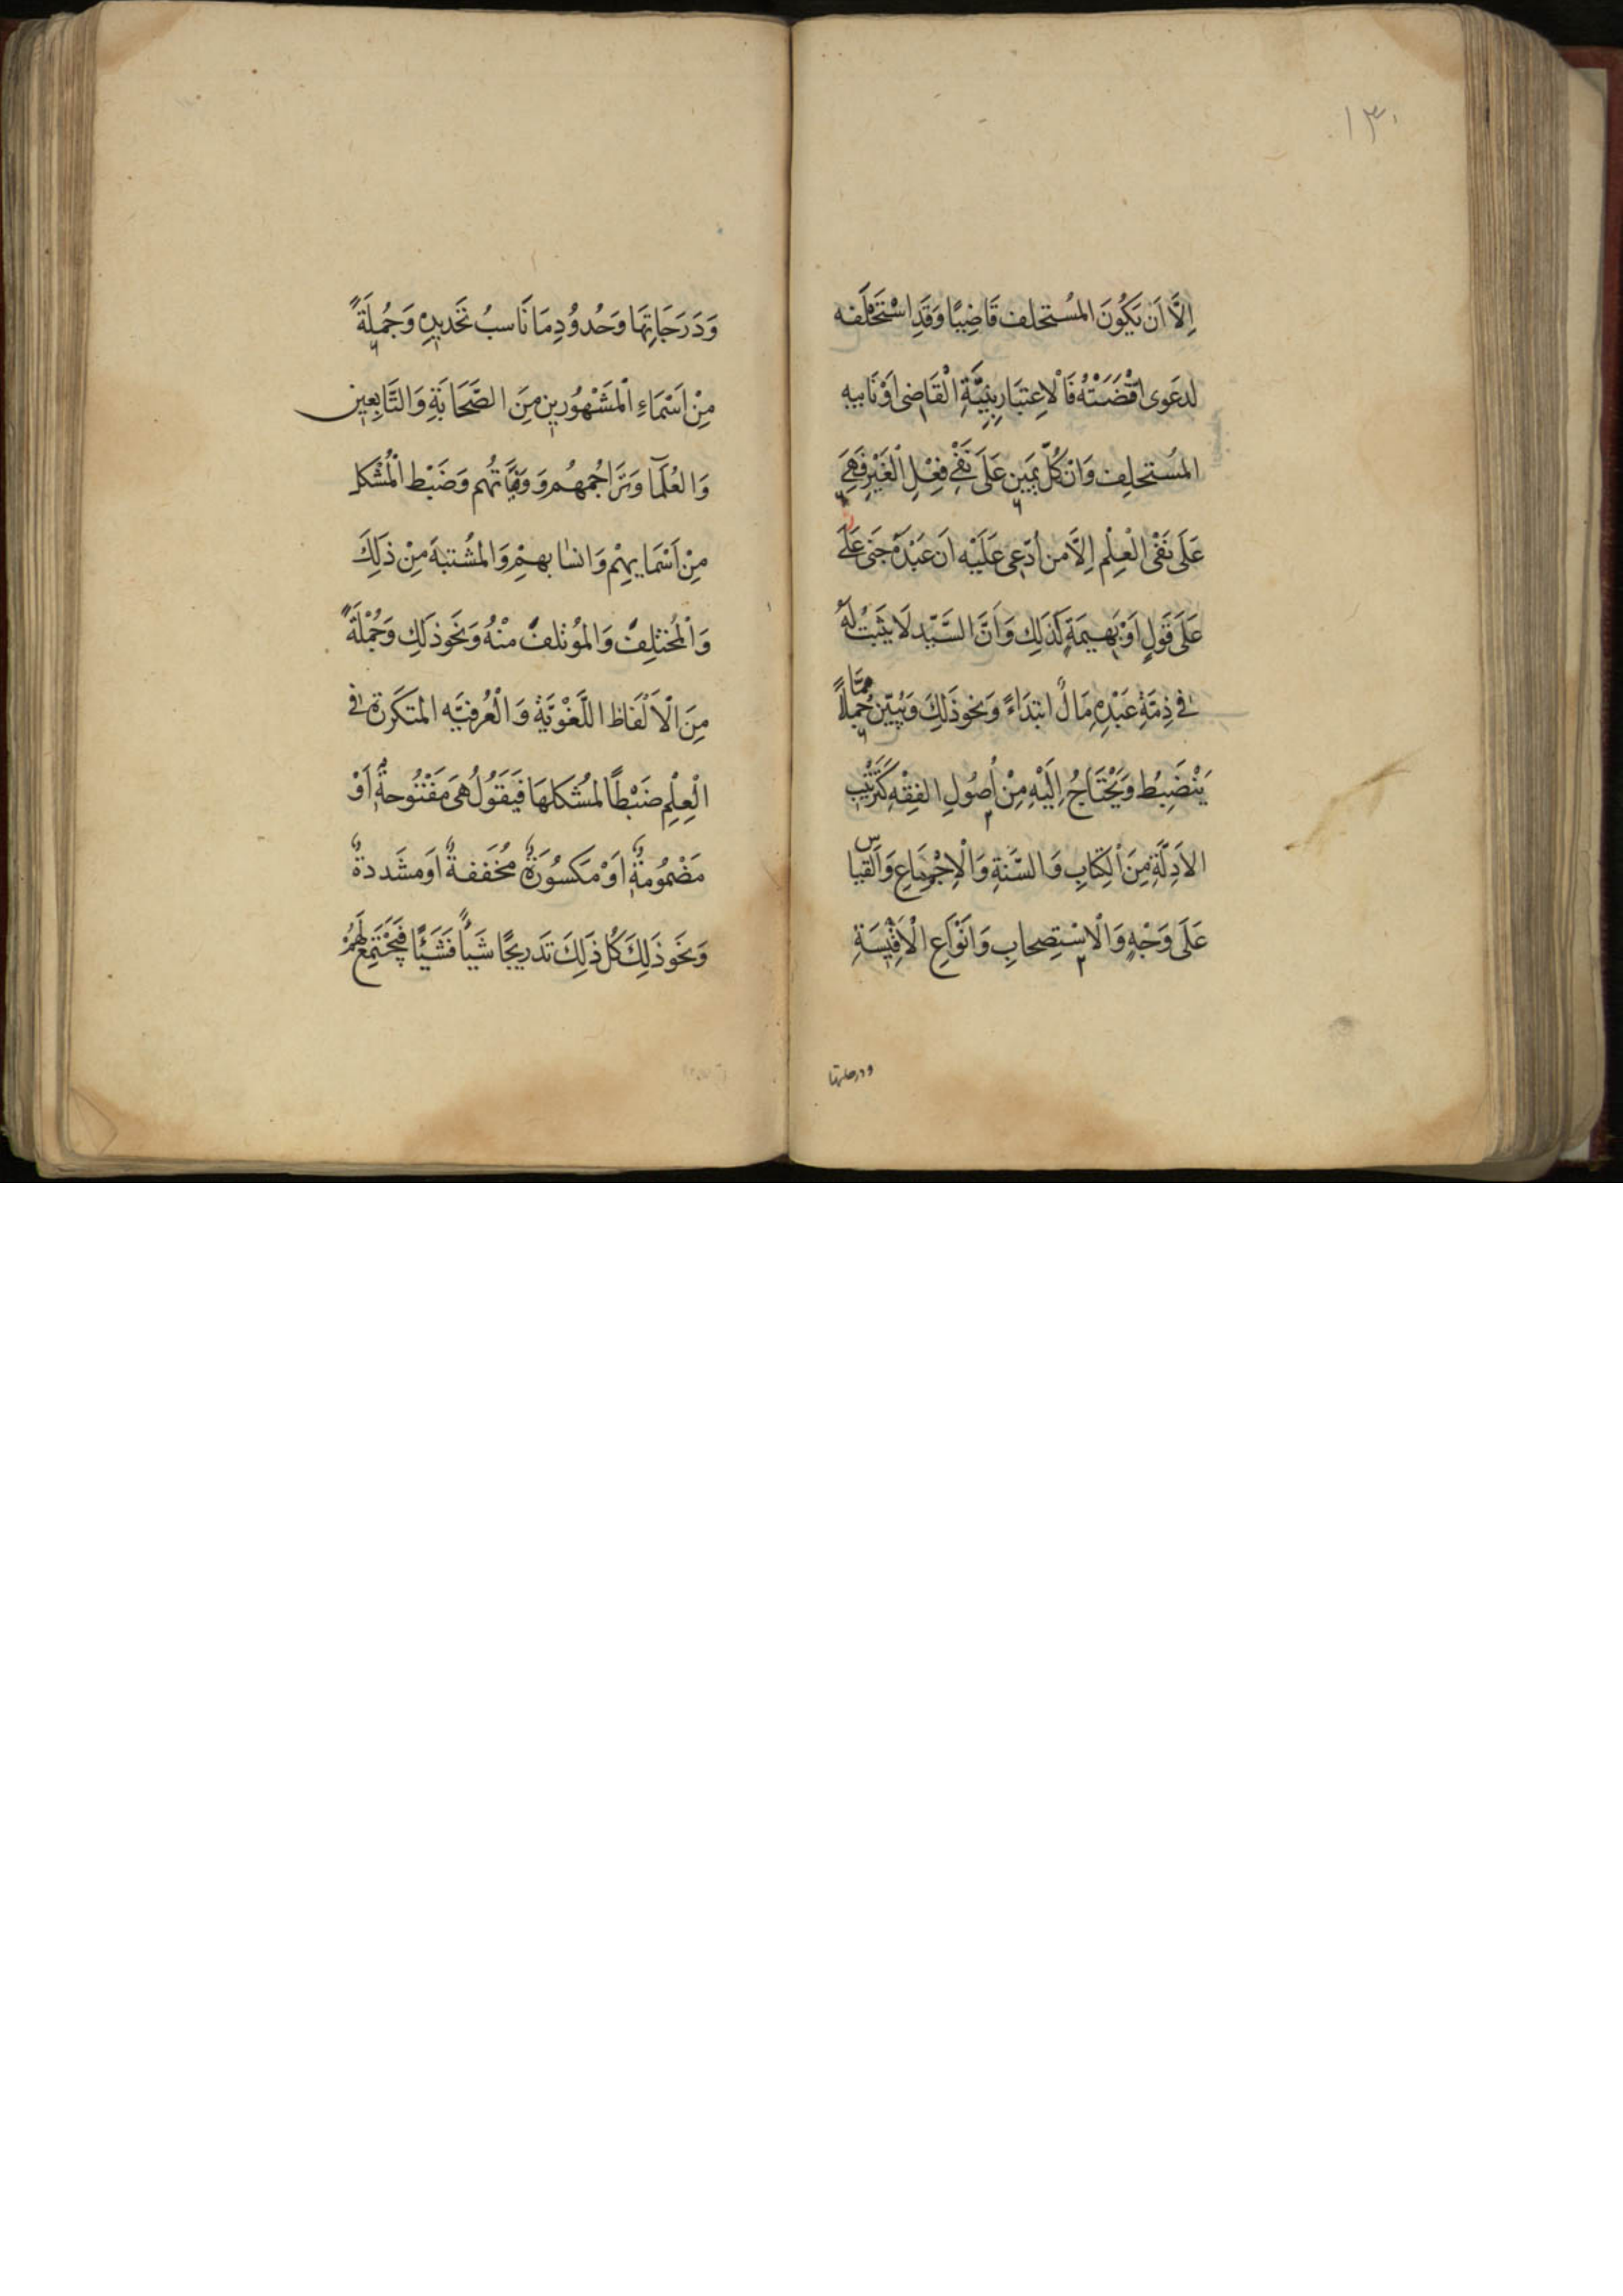 ١٣٠
اِلَّا اَن يَكُونَ المُستحلف قَاضِيًا وَقَدِ اسْتَحْلَفه
لدعَوى اقْتضَتْهُ فَالْاِعتبَار بِنِيَّةِ الْقَاضِى اَوْنَايبِهِ
المُستحلِف وَانْ كُلّ يَمين عَلَى نَفْىِ فِعْلِ الْغَيْرِ فَهِىَ
عَلَى نَفْى الْعِلْم اِلَّا من اُدّعِى عَلَيْه اَن عَبْدَهُ جَنى عَلَى
عَلَى قَولٍ اَوْ بَهِيمَةٍ كَذَلِكَ وَاَنَّ السَّيّد لَا يَثبُتُ لَهُ
فى ذِمَّةِ عَبْدِهِ مَالٌ ابتدَاءً وَنحو ذَلِكَ وَيُبيّن جُملًا ممَّا
يَنْضَبِطُ وَيَحْتَاجُ اِلَيْهِ مِنْ اُصُولِ الفِقْهِ كَتَرتْيبِ
الاَدِلَّةِ مِنَ الْكِتَابِ وَالسُّنةِ وَالْاِجْمَاعِ وَالْقيَاس
عَلَى وَجْهٍ وَالْاسْتِصحابِ وَانْوَاعِ الْاَقْيِسَةِ
ودرجاتها
وَدَرَجَاتِهَا وَحُدوُدِ مَا نَاسبُ تَحَديدِهِ وَجُملَةً
مِنْ اَسْمَاءِ الْمَشْهُورِين مِنَ الصَّحَابَةِ وَالتَّابِعِين
وَالعُلَمَآ وَتَرَاجُمهُم وَوَفَيَاتُهم وَضَبْط الْمُشْكل
مِنْ اَسْمَايِهِمْ وَانسَابهِمْ وَالمُشتبهَ مِنْ ذلِكَ
وَالْمُختلِف وَالموُتلف مْنهُ وَنحو ذلِكَ وَجُمْلَةً
مِنَ الْاَلْفَاظ اللَّغْوِيَّة وَالْعُرفيَّه المتكَررة فى
الْعِلْمِ ضَبْطاً لمُشكلهَا فَيَقوُلُ هِىَ مَفْتُوحةٌ اَوْ
مَضْمُومةٌ اَوْ مَكسُورَةٌ مُخَففةٌ اَو مشَددةٌ
وَنَحو ذَلِكَ كُل ذَلِكَ تَدريجًا شَيأً فَشَيْئًا فَيَجْتَمِعُ لَهُمْ